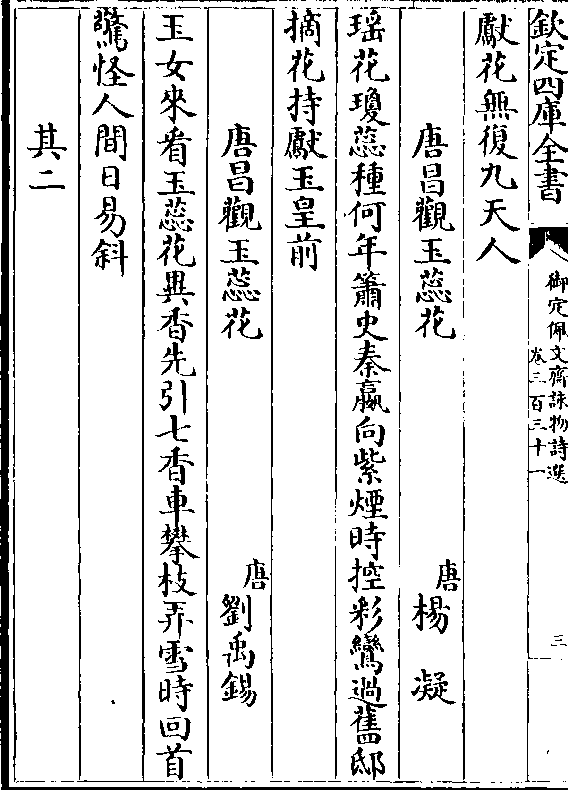 欽定四庫全書
御定佩文齋詠物詩選
卷三百三十一
三
獻花無復九天人
唐昌觀玉蕊花
唐楊凝
瑶花瓊蕊種何年簫史秦嬴向紫煙時控彩鸞過舊邸
摘花持獻玉皇前
唐昌觀玉蕊花
唐劉禹錫
玉女來看玉蕊花異香先引七香車攀枝弄雪時回首
驚怪人間日易斜
其二